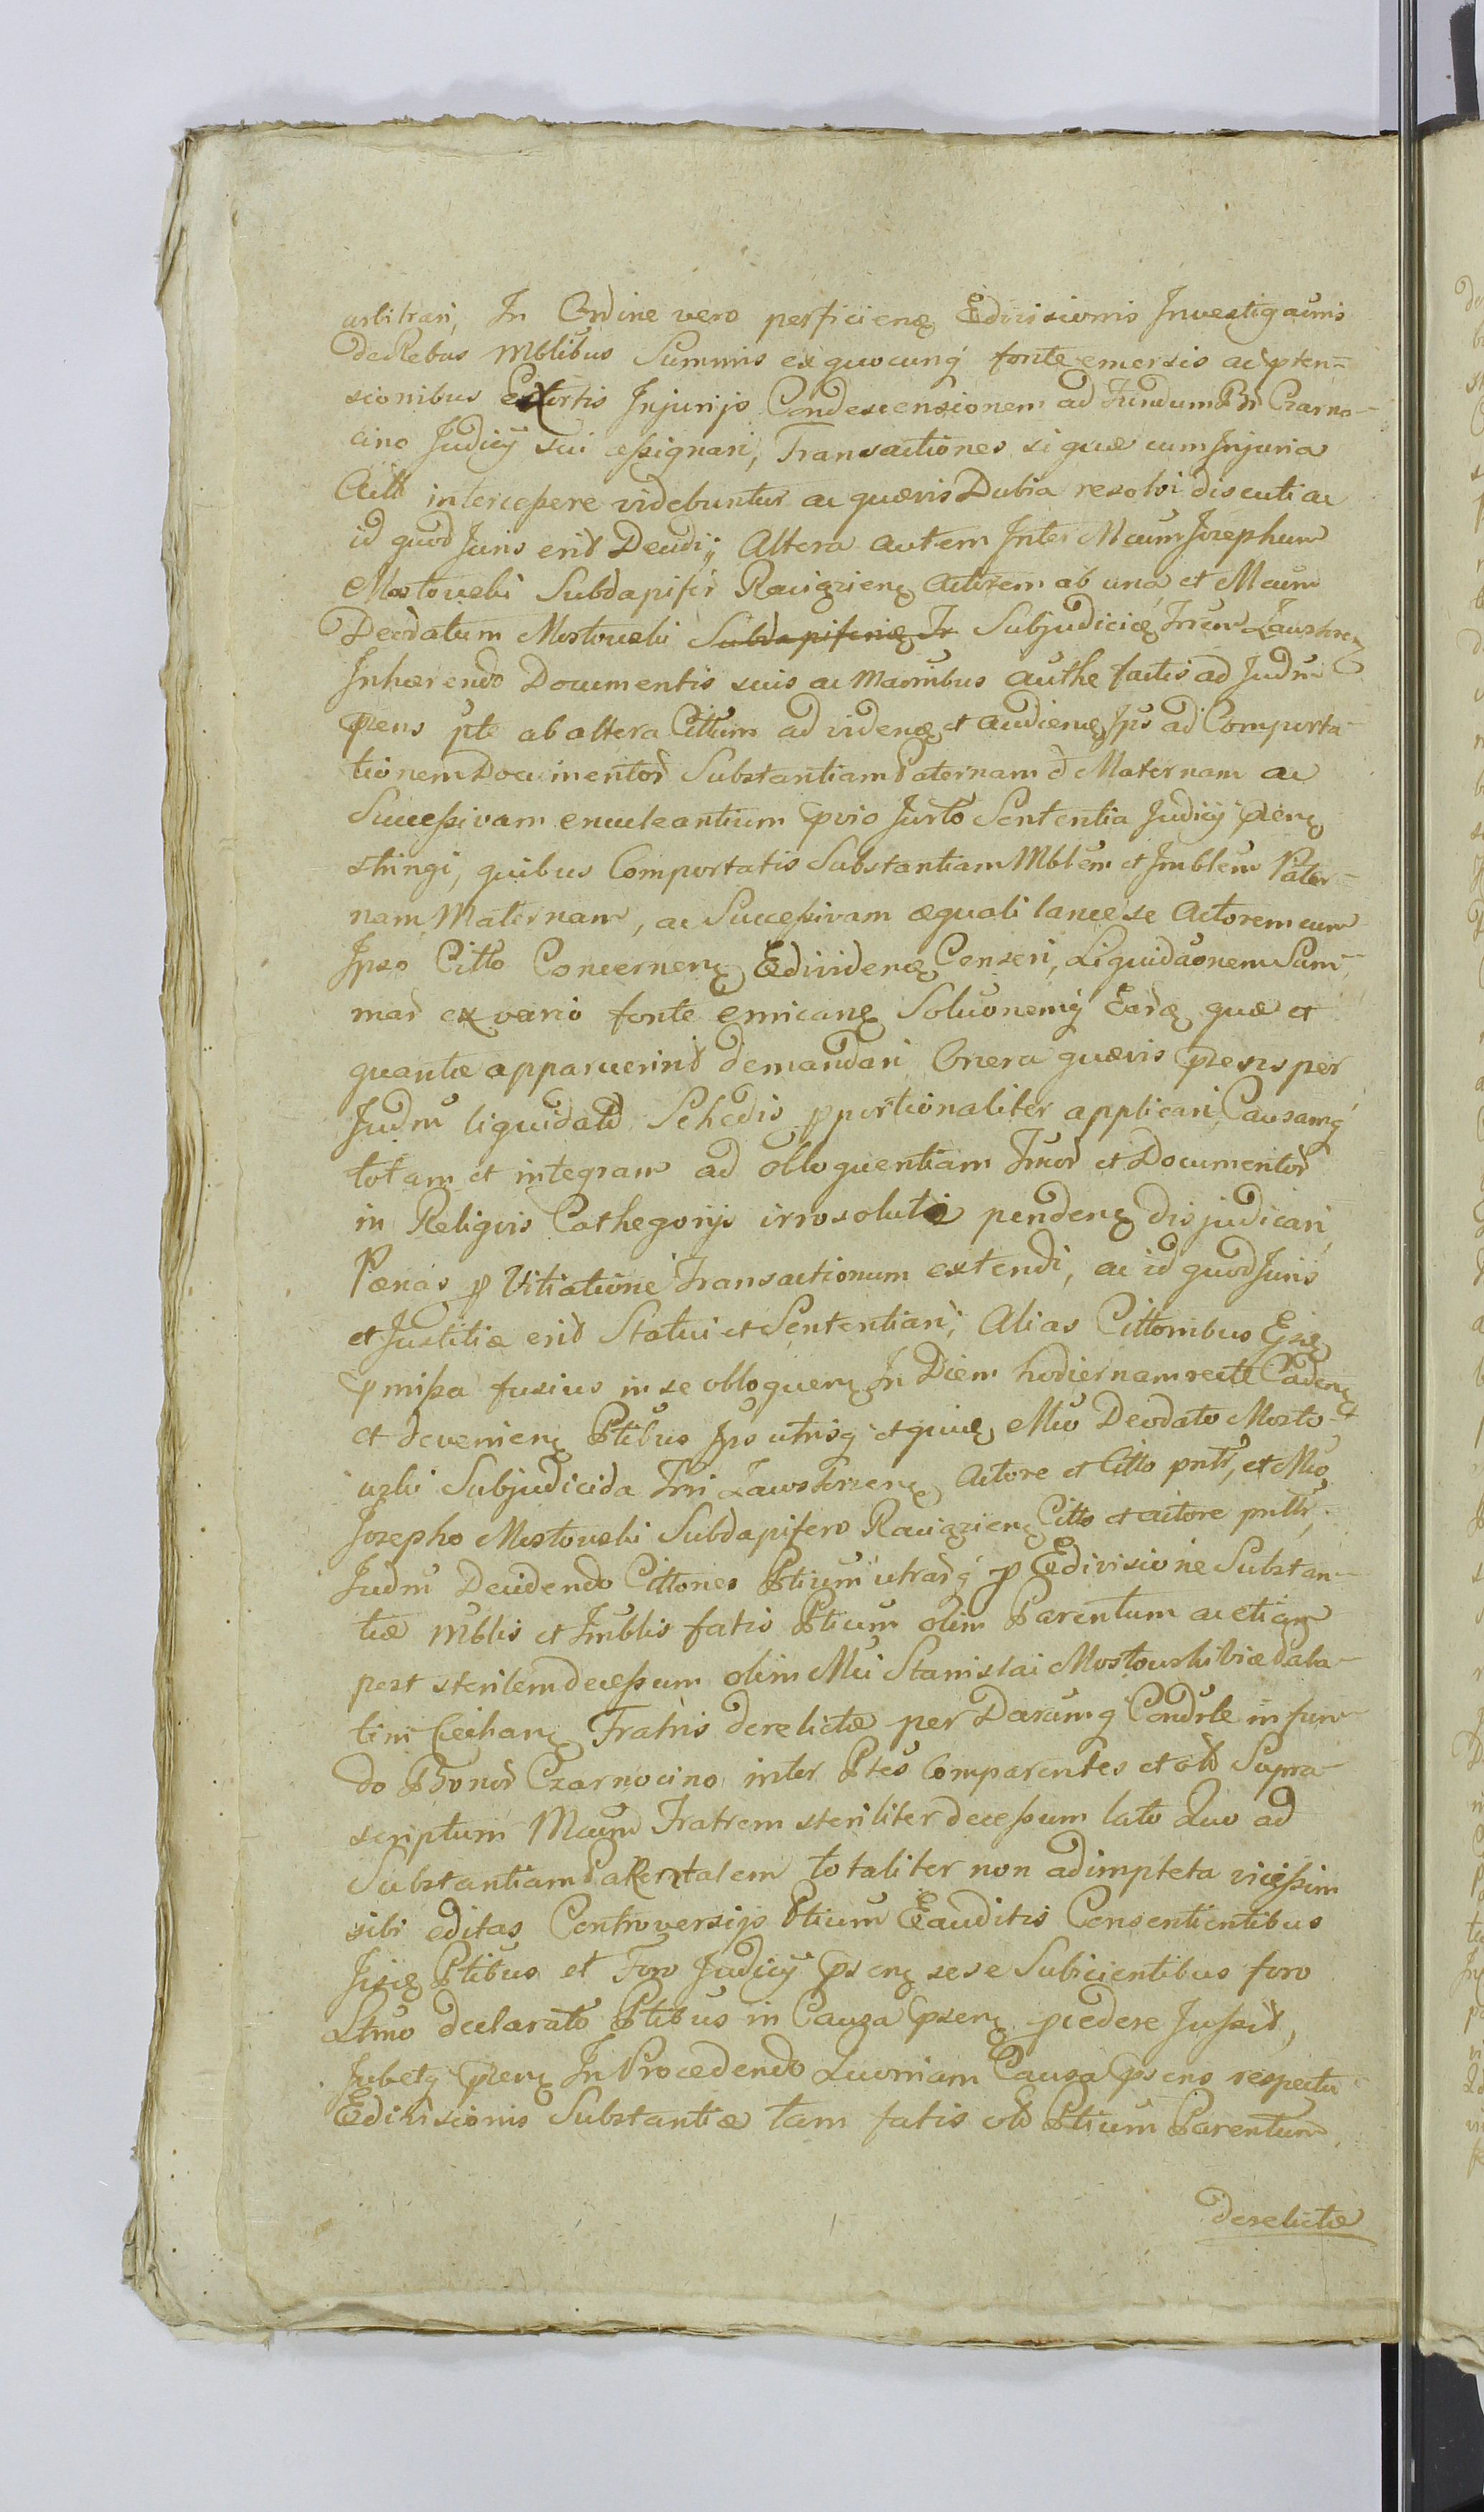 arbitrari, In Ordine vero perficienę Edivisionis Investigaonis
de Rebus Mblibus Summis ex quocunq fonte emersis ac pten-
sionibus Exortis Injurijs Condescensionem ad Fundum Bñ Czarno-
cino Judicij sui assignari, Transactiones si quæ cum Injuria
Citti intercessere videbuntur ac quævis Dubia resolvi discuti ac
id quod Juris erit Decidi; Altera autem Inter Mcum Josephum
Mostowski Subdapifer Racigzienę Actorem ab una, et Mcum
Deodatum Mostowski Subdapiferię Tr Subjudicię Trrem Zawskrzę
Inhærendo Documentis suis ac Manibus authe factis ad Judm
Psens pte ab altera Cittum ad videnę et audienę Ips ad Comporta-
tionem Documentor Substantiam Paternam et Maternam ac
Successivam enucleantium pvio Jurto Sententia Judicij Psenę
stringi, quibus Comportatis Substantiam Mblem et Imblem Pater-
nam Maternam, ac Successivam æquali lance se Actorem cum
Ipso Citto Concernenę Edividenę Censeri, Liquidaonem Sum-
mar ex vario fonte emicanę Soluonemq Earę quæ et
quantæ apparuerint demandari Onera quævis Psens per
Judm liquidata Schedis pportionaliter applicari, Causamq
totam et integram ad obloquentiam Jurior et Documentor
in Reliqvis Cathegorijs irresoluti pendenę disjudicari,
Pænas p Vitiatione Transactionum extendi, ac id quod Juris
et Justitiæ erit Statui et Sententiari; Alias Cittonibus Ejsę
pmissa fusius in se obloquenę In Diem hodiernam recte Cadenę
et devenienę Ptibus Ips utrisq et quidę Mco Deodato Mosto-
wski Subjudicida Trri Zawskrzenę Actore et Citto pntr, et Mco
Josepho Mostowski Subdapifero Racigzienę Citto et actore pntr,
Judm Decidendo Cittones Ptium utrarq p Edivisione Substan-
tiæ Mblis et Imblis fatis Ptium olim Parentum ac etiam
post sterilem decessum olim Mci Stanislai Mostowski Vice Pala-
tini Ciechanę Fratris derelictæ per Dasumq Condrle in fun-
do Bonor Czarnocino inter Ptes Comparentes et olt Supra-
scriptum Mcum Fratrem steriliter decessum lato Quo ad
Substantiam Parentalem totaliter non adimpleta vicissim
sibi editas Controversijs Ptium Exauditis Consentientibus
Jisdę Ptibus et Foro Judicij Psenę sese Subicientibus foro
Ltmo declarato Ptibus in Causa Psenę pcedere Jussit,
Jubetq Psenę In Procedendo Quoniam Causa Psens respectu
Edivisionis Substantiæ tam fatis olt Ptium Parentum
derelictæ